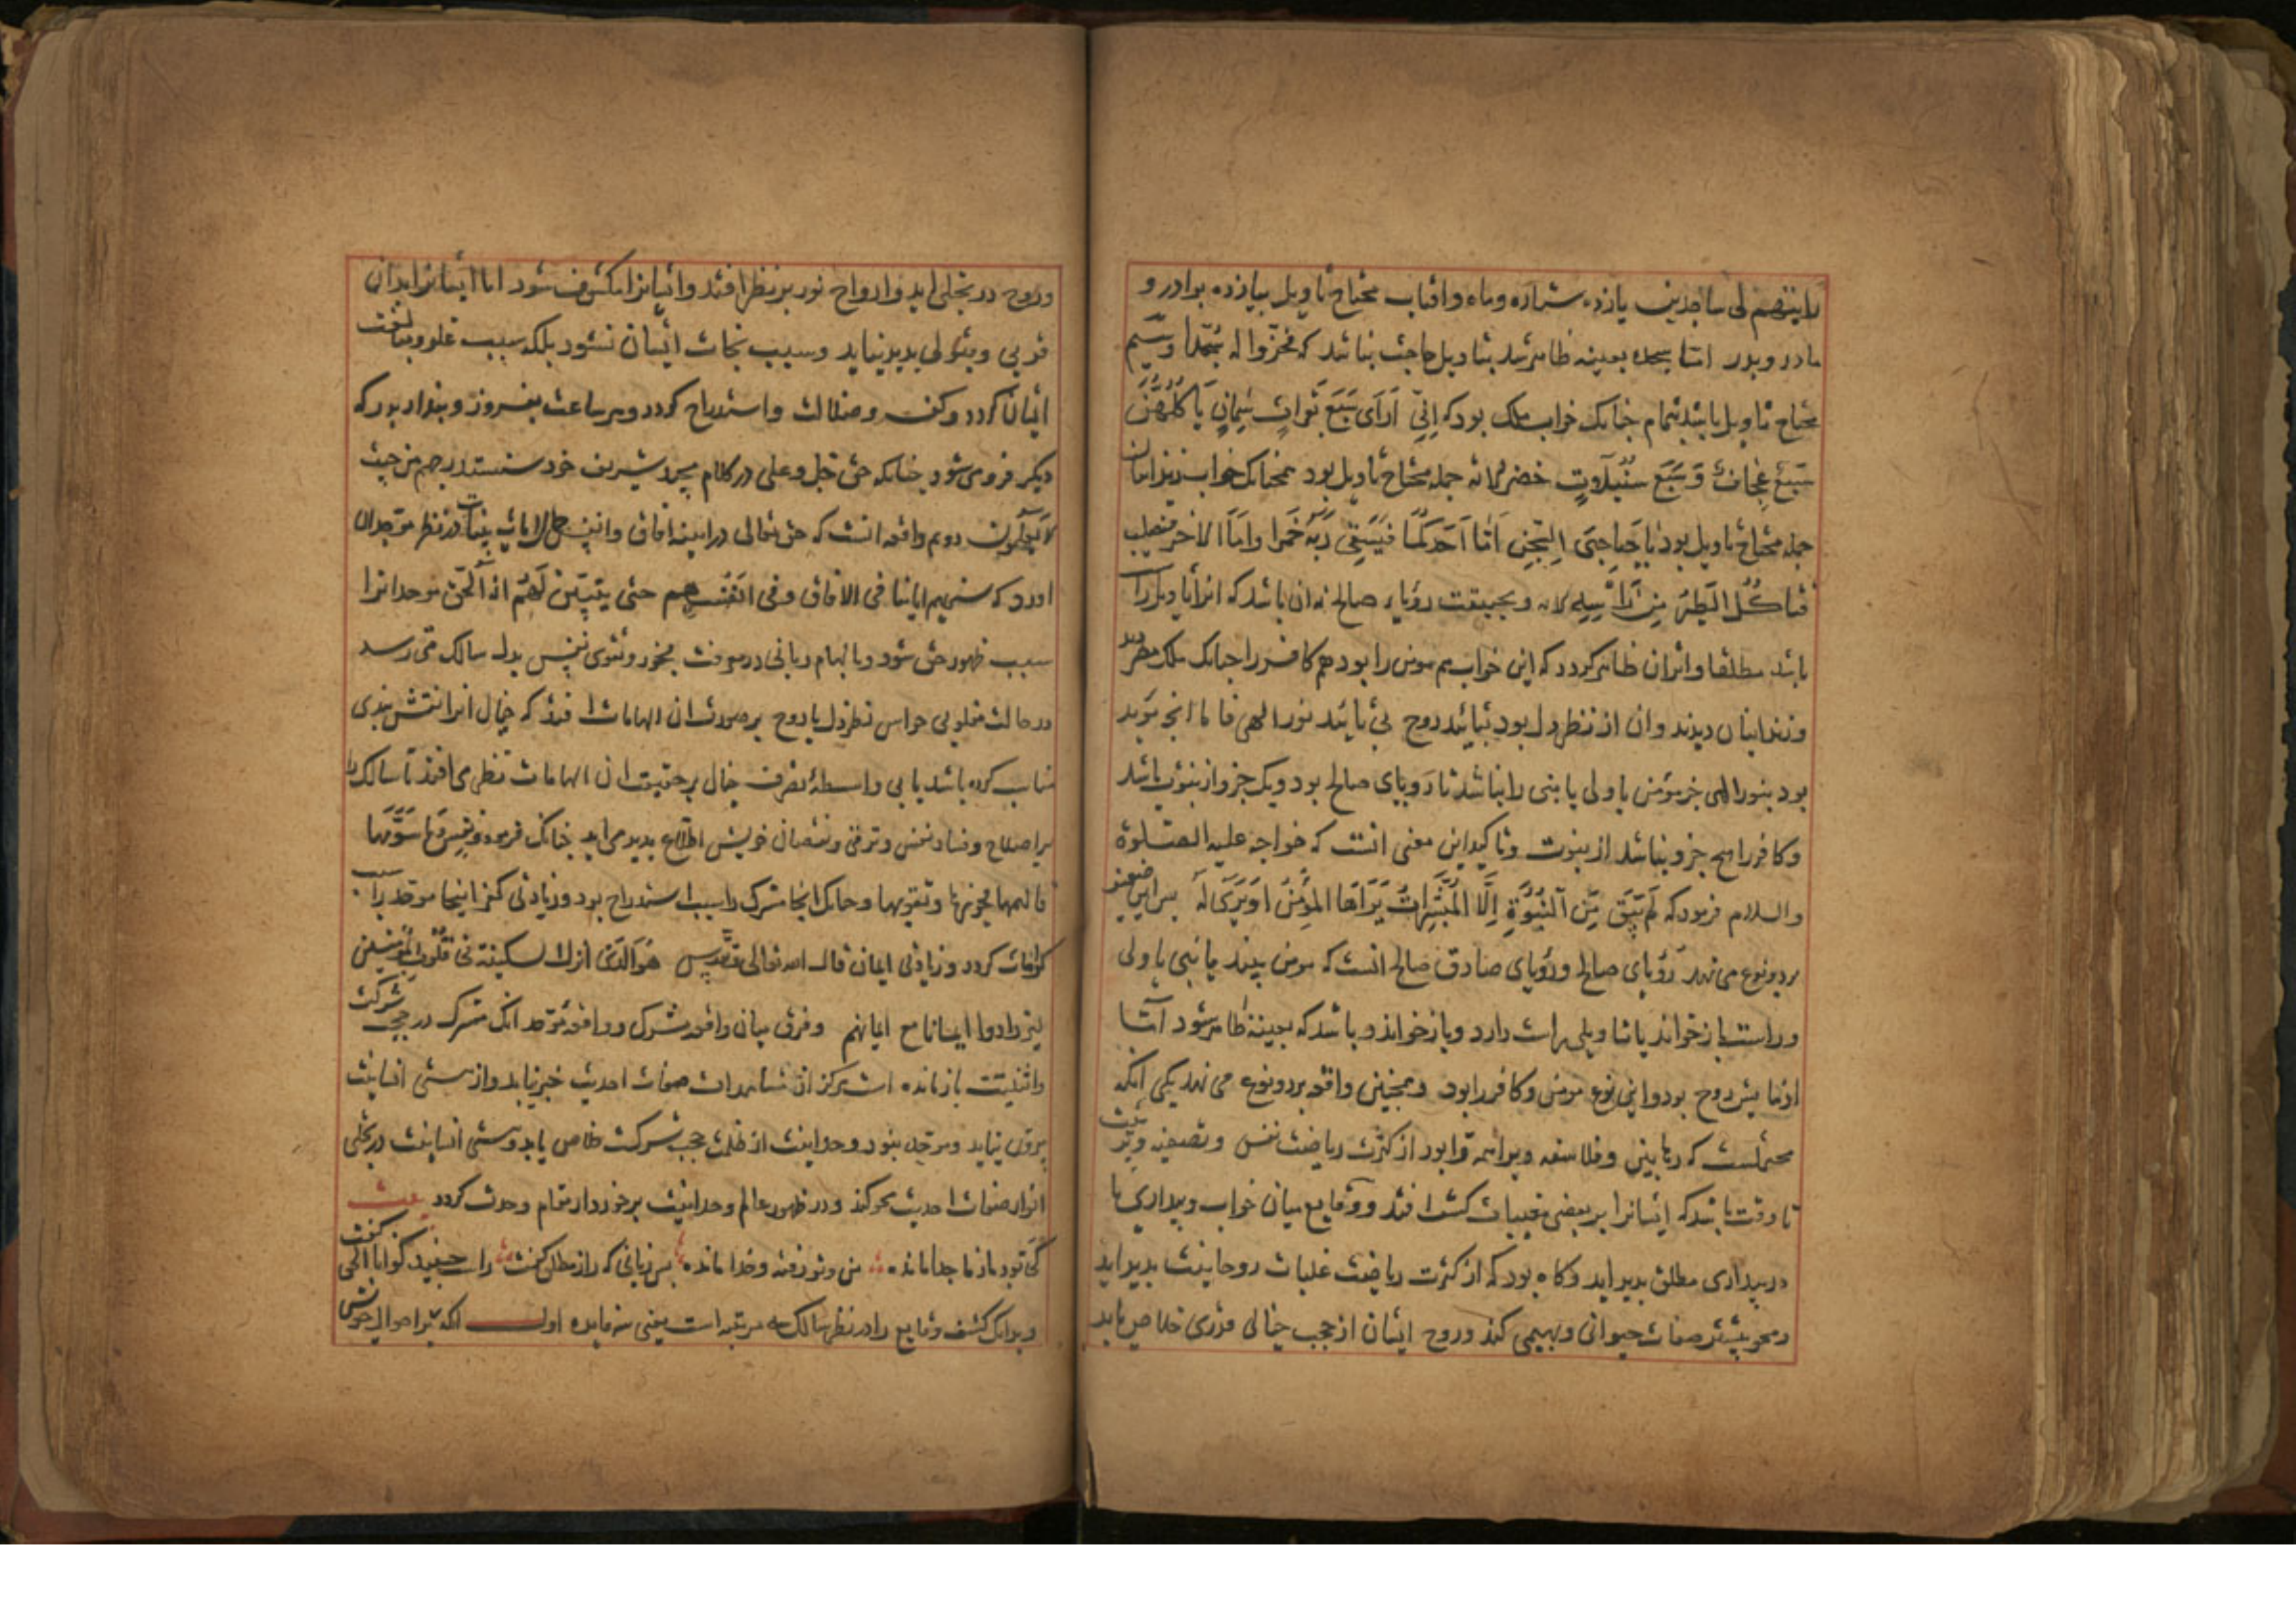 رایتهم لی ساجدین یازده ستاره و ماه و افتاب محتاج تاویل بیازده برادر و
مادر و پدر اما سجده بعینه ظاهر شد بتاویل حاجت نباشد که فخروا له سجدا و سیم
محتاج تاویل باشد بتمام چنانک خواب ملک بود که اِنّی اَرَای سَبعَ بَقَراتٍ سِمانٍ یَاکُلُهُنَّ
سَبعٌ عِجَافٌ وَ سَبعَ سُنبُلاتٍ خضر الایه جمله محتاج تاویل بود همچنانک خواب زندانیان
جمله محتاج تاویل بود یَا صَاحِبَیِ السِّجنِ اَمَّا اَحَدُکُمَا فَیَسقِی رَبَّهُ خَمرا وَاَمَّا الاخر فیصلب
فتَاکُلُ الطَّیرُ مِن رَاسِهِ الایه و بحقیقت رؤیاء صالح نه ان باشد که انرا تاویل راست
باشد مطلقا و اثران ظاهر کردد که این خواب هم مومن را بود هم کافر را چنانک ملک مصر دید
و زندانیان دیدند و ان از نظر دل بود بتائید روح بی تائید نور الهی فاما انچ مؤید
بود بنور الهی جز مؤمن یا ولی یا نبی را نباشد تا رویای صالح بود و یک جزو از نبوت باشد
و کافر را هیچ جزو نباشد از نبوت و تاکید این معنی انست که خواجه علیه الصلوة
والسلام فرمود که لَم یَبقَ مِنَ النُبُوَّةِ اِلَّا المُبَشِّراتُ یَرَاهَا المُؤمِنُ اَو یُرَی لَهُ پس این ضعیف
بر دو نوع می نهد رؤیای صالح و رؤیای صادق صالح انست که مومن بیند یا نبی یا ولی
و راست باز خواند یا تاویلی راست دارد و باز خواند و باشد که بعینه ظاهر شود اما
از نمایش روح بود و این نوع مومن و کافر را بود و همچنین واقعه بر دو نوع می نهد یکی انکه
محتملست که رهابین و فلاسفه و براهمه را بود از کثرت ریاضت نفس و تصفیه و تربیت
تا وقت باشد که ایشانرا بر بعضی مغیبات کشف افتد و وقایع میان خواب و بیداری یا
در بیداری مطلق بدید اید و کاه بود که از کثرت ریاضت غلبات روحانیت بدید اید
و محو بیشتر صفات حیوانی و بهیمی کند و روح ایشان از حجب خیالی قدری خلاص یابد
و روح در تجلی اید و ارواح نور بر نظر افتد و انیانرا مکشوف شود اما ایشانرا بدان
قربی و قبولی بدید نیاید و سبب نجات ایشان نشود بلکه سبب غلو و مبالغت
ایشان کردد و کفر و ضلالت و استدراج کردد و هر ساعت بغرور و پندار بدرکه
دیکر فرو می شود چنانکه حق جل و علی در کلام مجید شریف خود سنستدرجهم من حیث
لا یعلمون دویم واقعه انست که حق تعالی در اینه افاق و انفس جمال ایات بینات در نظر موحدان
اورد که سنریهم ایاتنا فی الافاق و فی انفسهم حتی یتبین لَهُم انه الحق موحدانرا
سبب ظهور حق شود و بالهام ربانی در معرفت فجور و تقوی نفس بدل سالک می رسد
در حالت مغلوبی حواس نظر دل یا روح بر صورت ان الهامات افتد که خیال انرا نقش بندی
مناسب کرده باشد یا بی واسطهٔ تصرف خیال بر حقیقت ان الهامات نظر می افتد تا سالک را
بر اصلاح و فساد نفس و ترقی و نقصان خویش اطلاع بدید می اید چنانک فرمود و نفس وما سَوَّیها
فالهمها فجورها و تقویها و چنانک انجا مشرک را سبب استدراج بود و زیادتی کفر اینجا موحد را سبب
کرامات کردد و زیادتی ایمان قال الله تعالی و تقدس هُوَالَّذی انزل السکینة فی قُلُوبِ المُؤمنین
لیزدادوا ایمانا مع ایمانهم و فرق میان واقعه مشرک و واقعه موحد انک مشرک در حجب شرکت
و اثنینیت باز مانده است هرکز از مشاهدات صفات احدیت خبر نیابد و از هستی انسانیت
بیرون نیاید و موحد بنور وحدانیت از ظلمت حجب شرکت خلاص یابد و هستی انسانیت در تجلی
انوار صفات احدیت محو کند و در ظهور عالم وحدانیت برخوردار مقام وحدت کردد بیت
کی تو بود از ما جدا مانده من و تو رفته و خدا مانده پس زبانی که راز مطلق کفت راست جنبید کو انا الحق کفت
و بدانک کشف وقایع را در نظر سالک سه مرتبه است یعنی سه فایده اول انکه بر احوال خویش